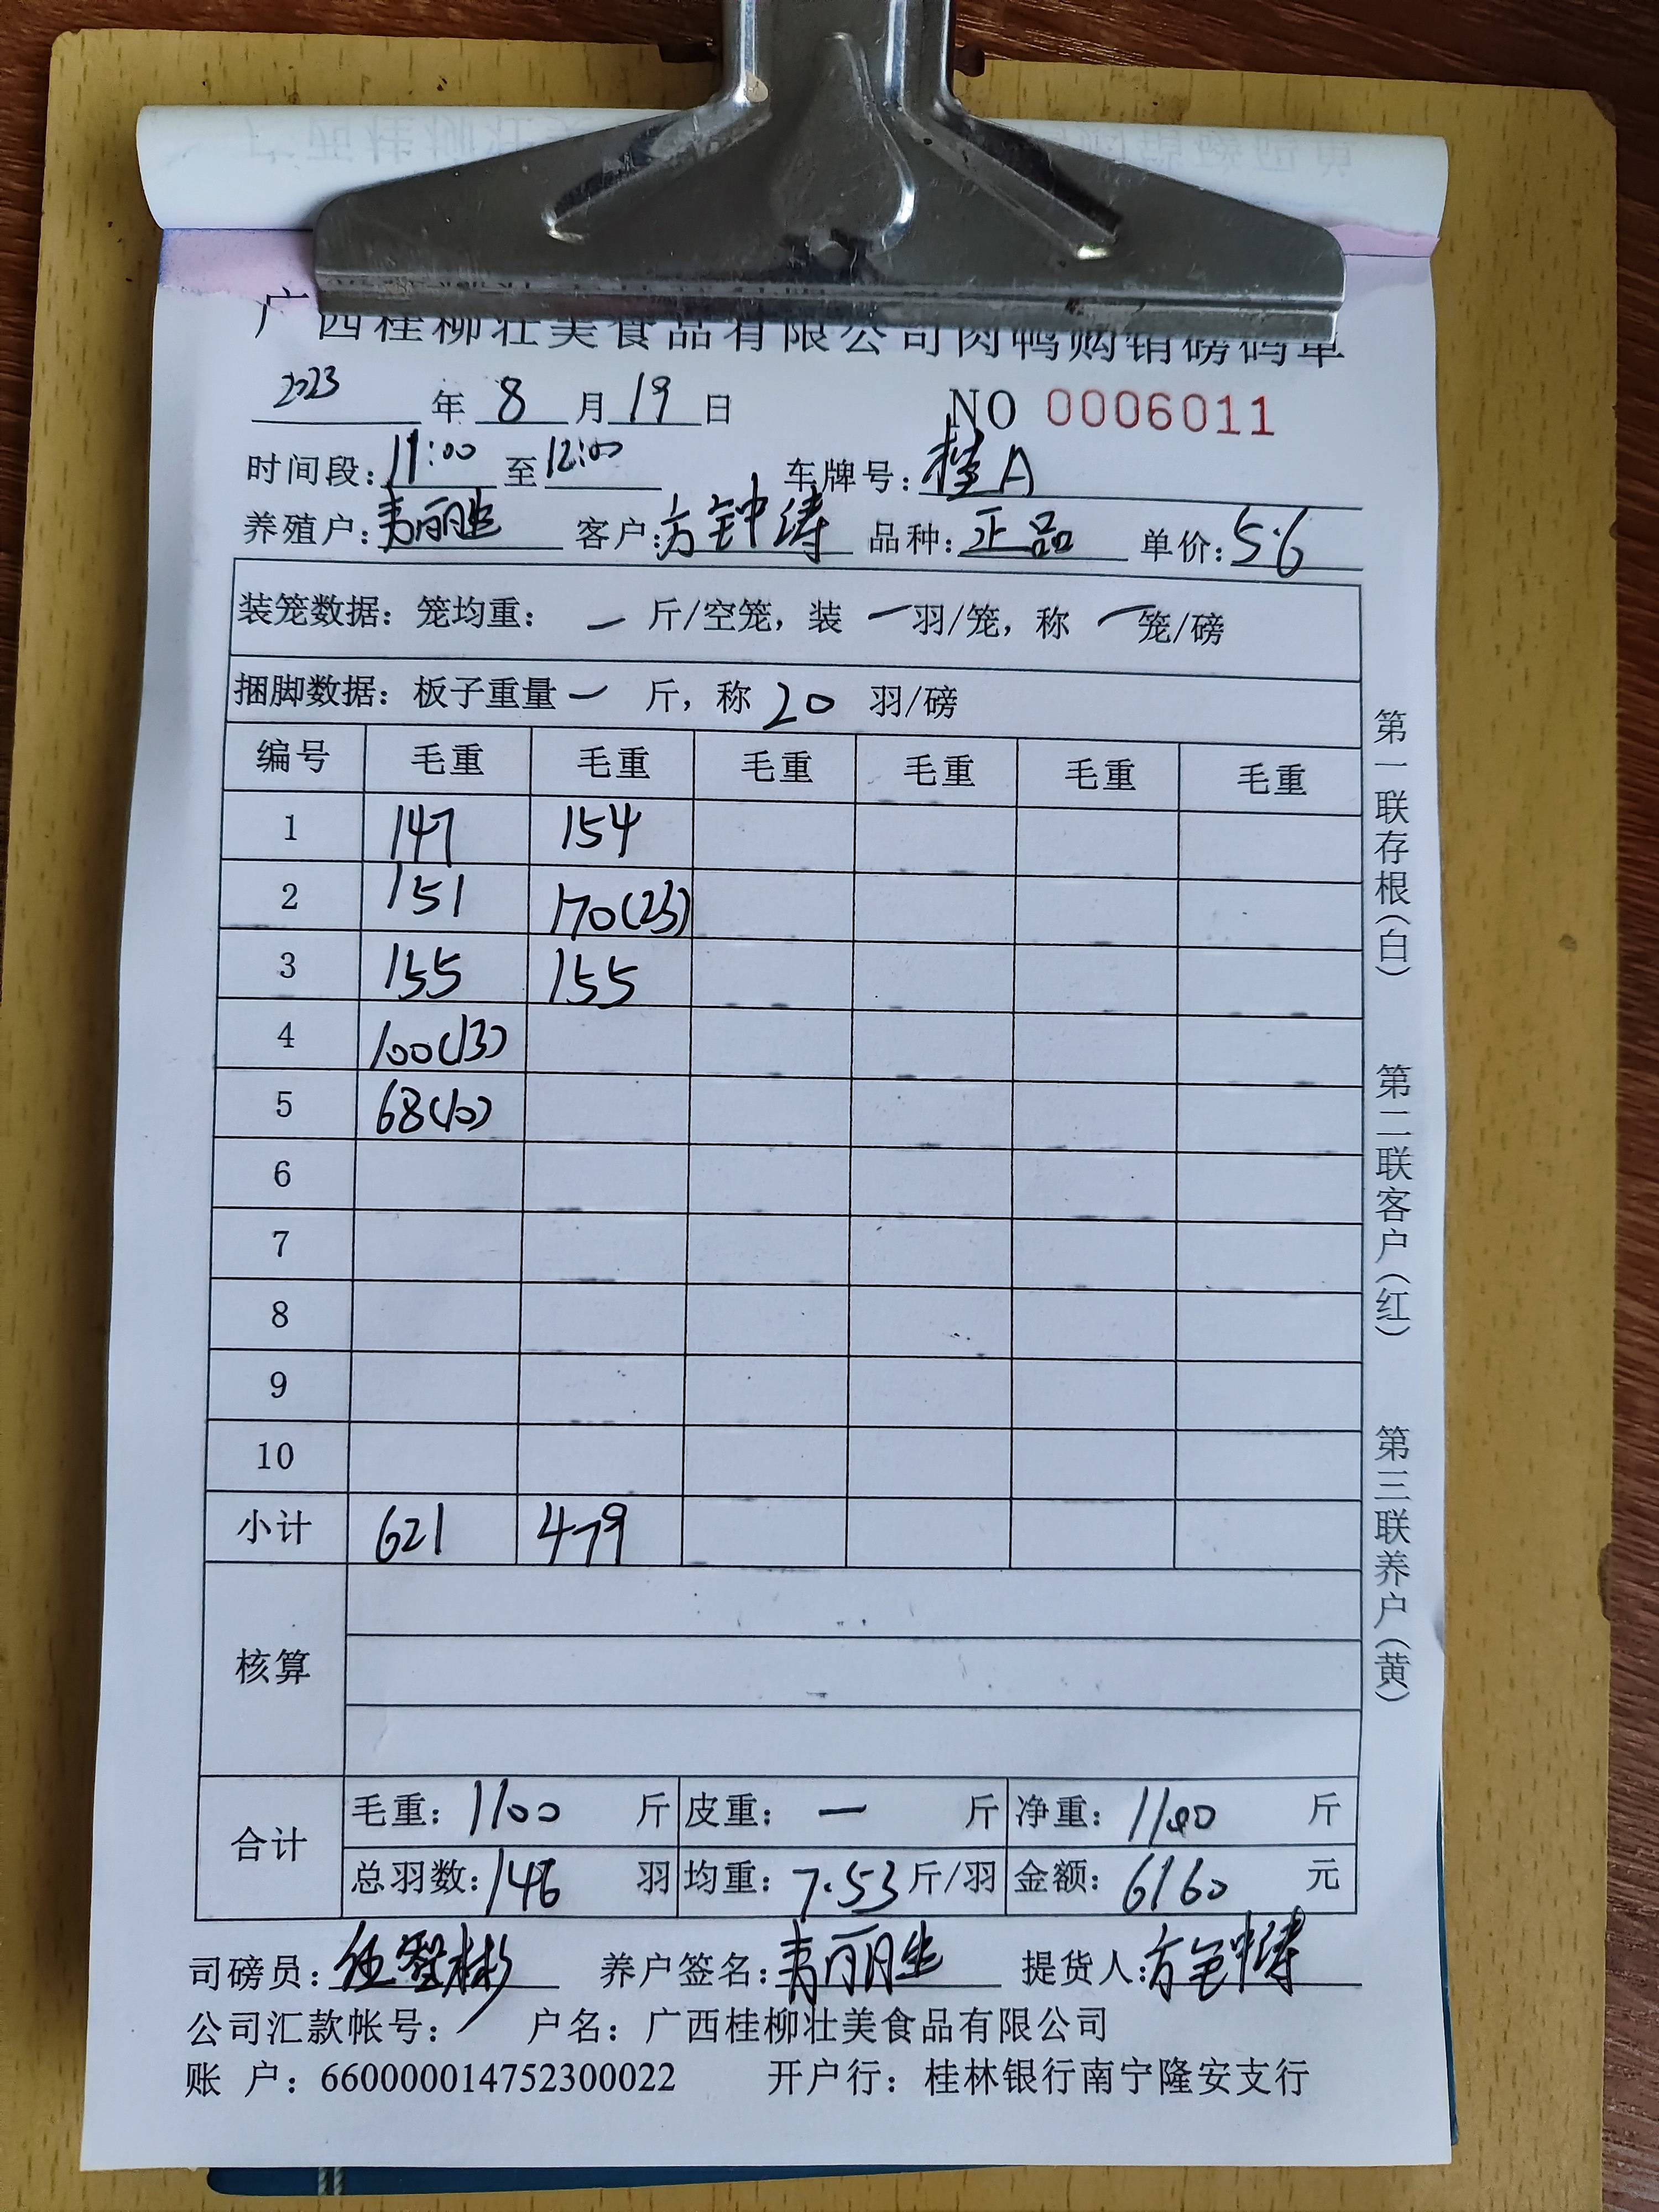 广西桂柳壮美食品有限公司肉鸭购销磅码单
2023 年 8 月 19 日 NO 0006011
时间段: 11:00 至 12:00 车牌号: 桂A
养殖户: 韦丽生 客户: 方钟涛 品种: 正品 单价: 5.6
装笼数据: 笼均重: — 斤/空笼, 装 — 羽/笼, 称 — 笼/磅
捆脚数据: 板子重量 — 斤, 称 20 羽/磅
编号 毛重 毛重 毛重 毛重 毛重 毛重
1 147 154
2 151 170(23)
3 155 155
4 100(13)
5 68(10)
6
7
8
9
10
小计 621 479
核算
合计 毛重: 1100 斤 皮重: — 斤 净重: 1100 斤
总羽数: 146 羽 均重: 7.53 斤/羽 金额: 6160 元
司磅员: 养户签名: 韦丽生 提货人: 方钟涛
公司汇款帐号: 户名: 广西桂柳壮美食品有限公司
账 户: 660000014752300022 开户行: 桂林银行南宁隆安支行
第一联存根(白) 第二联客户(红) 第三联养户(黄)